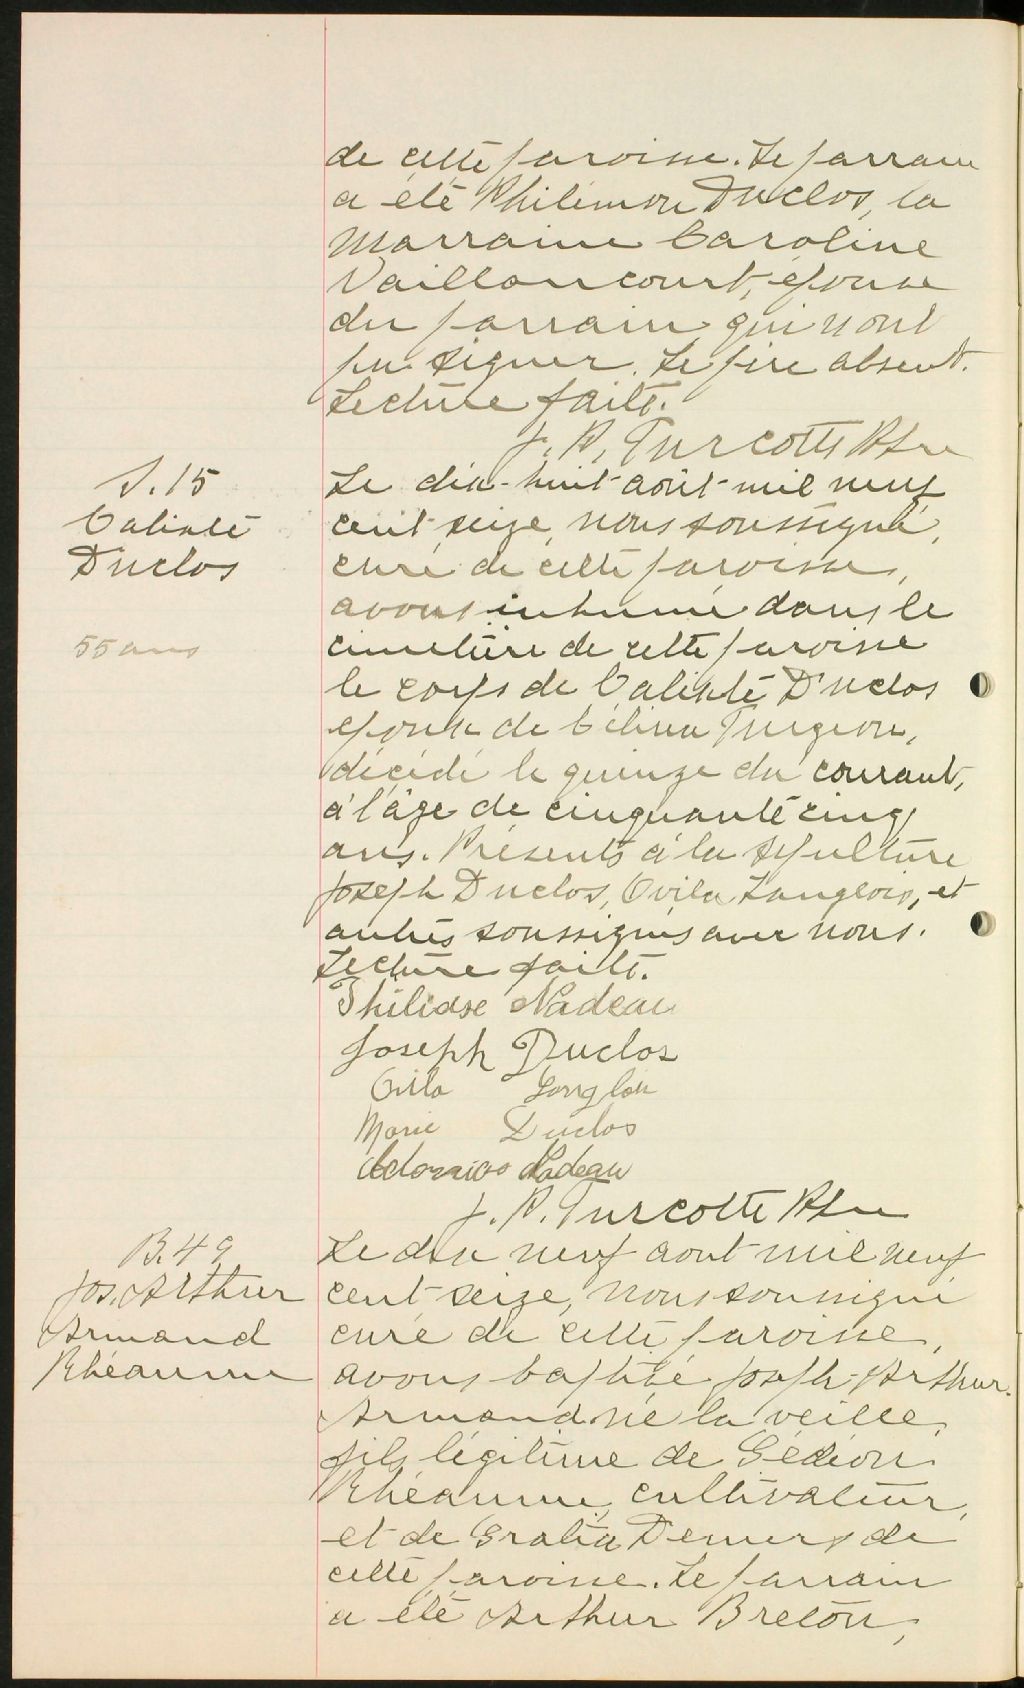 de cette paroisse. Le parrain
a été Philémon Duclos, la
Marraine Caroline
Vaillancourt, épouse
du parrain qui n'ont
pu signer. Le père absent.
Lecture faite.
J. P. Turcotte Ptre
S. 15
Calixte
Duclos
55 ans
Le dix-huit août mil neuf
cent seize, nous soussigné,
curé de cette paroisse,
avons inhumé dans le
cimetière de cette paroisse
le corps de Calixte Duclos
époux de Célina Turgeon,
décédé le quinze du courant,
à l'âge de cinquante cinq
ans. Présents à la sépulture
Joseph Duclos, Ovila Langlois, et
autres soussignés avec nous.
Lecture faite.
Philiase Nadeau
Joseph Duclos
Ovila Langlois
Marie Duclos
Nadeau
J. P. Turcotte Ptre
B. 49
Jos. Arthur
Armand
Rhéaume
Le dix neuf août mil neuf
cent seize, nous soussigné
curé de cette paroisse,
avons baptisé Joseph-Arthur-
Armand né la veille,
fils légitime de Gédéon
Rhéaume, cultivateur,
et de Gratia Demers de
cette paroisse. Le parrain
a été Arthur Breton,